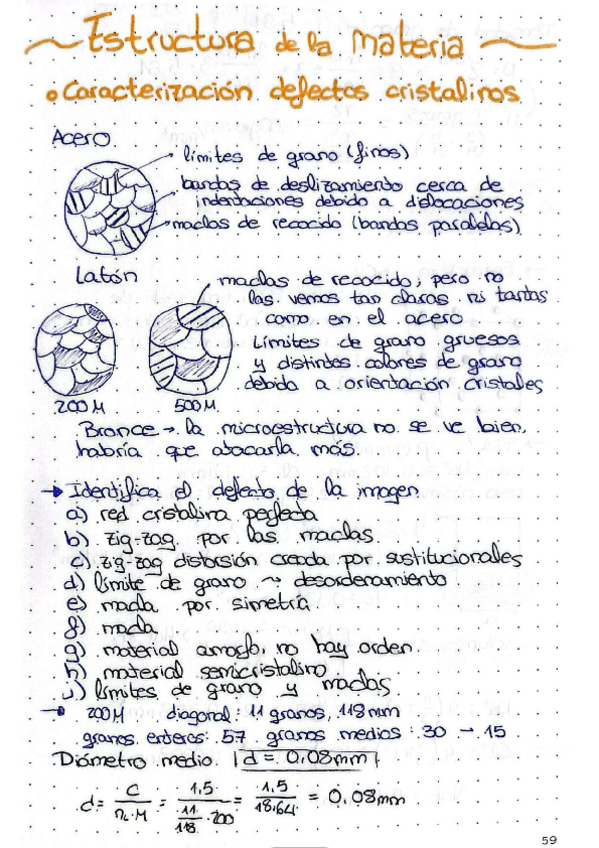 Estructura de la materia
• Caracterización defectos cristalinos
Acero
límites de grano (finos)
bandas de deslizamiento cerca de
indentaciones debido a dislocaciones
maclas de recocido (bandas paralelas)
Latón
maclas de recocido, pero no
las vemos tan claras ni tantas
como en el acero
Límites de grano gruesos
y distintos colores de grano
debido a orientación cristales
200M
500M
Bronce → la microestructura no se ve bien,
habría que atacarla más.
→ Identifica el defecto de la imagen
a) red cristalina perfecta
b) zig-zag por las maclas
c) zig-zag distorsión creada por sustitucionales
d) límite de grano → desordenamiento
e) macla por simetría
f) macla
g) material amorfo, no hay orden.
h) material semicristalino
i) límites de grano y maclas
→ 200M diagonal: 11 granos, 118mm
granos enteros: 57 granos medios: 30 → 15
Diámetro medio d = 0,08mm
d = C / n_L·M = 1,5 / (11/118 · 200) = 1,5 / 18,64 = 0,08mm
59